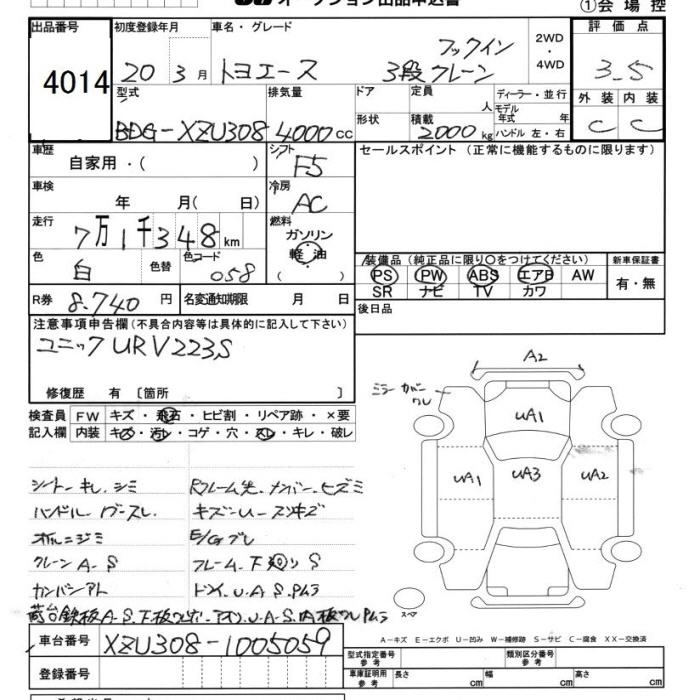 オークション出品申込書
①会場控
出品番号 初度登録年月 車名・グレード 2WD・4WD 評価点
4014 20 3月 トヨエース フックイン 3段クレーン 3.5
型式 排気量 ドア 定員 人 ディーラー・並行 外装 内装
BDG-XZU308 4000cc 形状 積載 2000kg モデル年式 年 ハンドル 左・右 C C
車歴 自家用・( ) シフト F5 セールスポイント (正常に機能するものに限ります)
車検 年 月( 日) 冷房 AC
走行 7万1千348km 燃料 ガソリン 軽油 ( )
色 白 色替 色コード 058
装備品(純正品に限り○をつけてください) 新車保証書
PS PW ABS エアB AW 有・無
SR ナビ TV カワ
R券 8.740円 名変通知期限 月 日 後日品
注意事項申告欄(不具合内容等は具体的に記入して下さい)
ユニックURV223S
修復歴 有 〔箇所 〕
検査員 FW キズ・飛石・ヒビ割・リペア跡・×要
記入欄 内装 キズ・汚れ・コゲ・穴・スレ・キレ・破レ
A2
ミラーカバーワレ
UA1
UA1 UA3 UA2
シートキレ.シミ
ハンドル
オイルニジミ
クレーンA-S
カンバンアト
フレーム.下廻りS
車台番号 XZU308-1005059
登録番号
スペア
A-キズ E-エクボ U-凹み W-補修跡 S-サビ C-腐食 XX-交換済
型式指定番号 参考 類別区分番号 参考
車庫証明用 参考 長さ cm 幅 cm 高さ cm